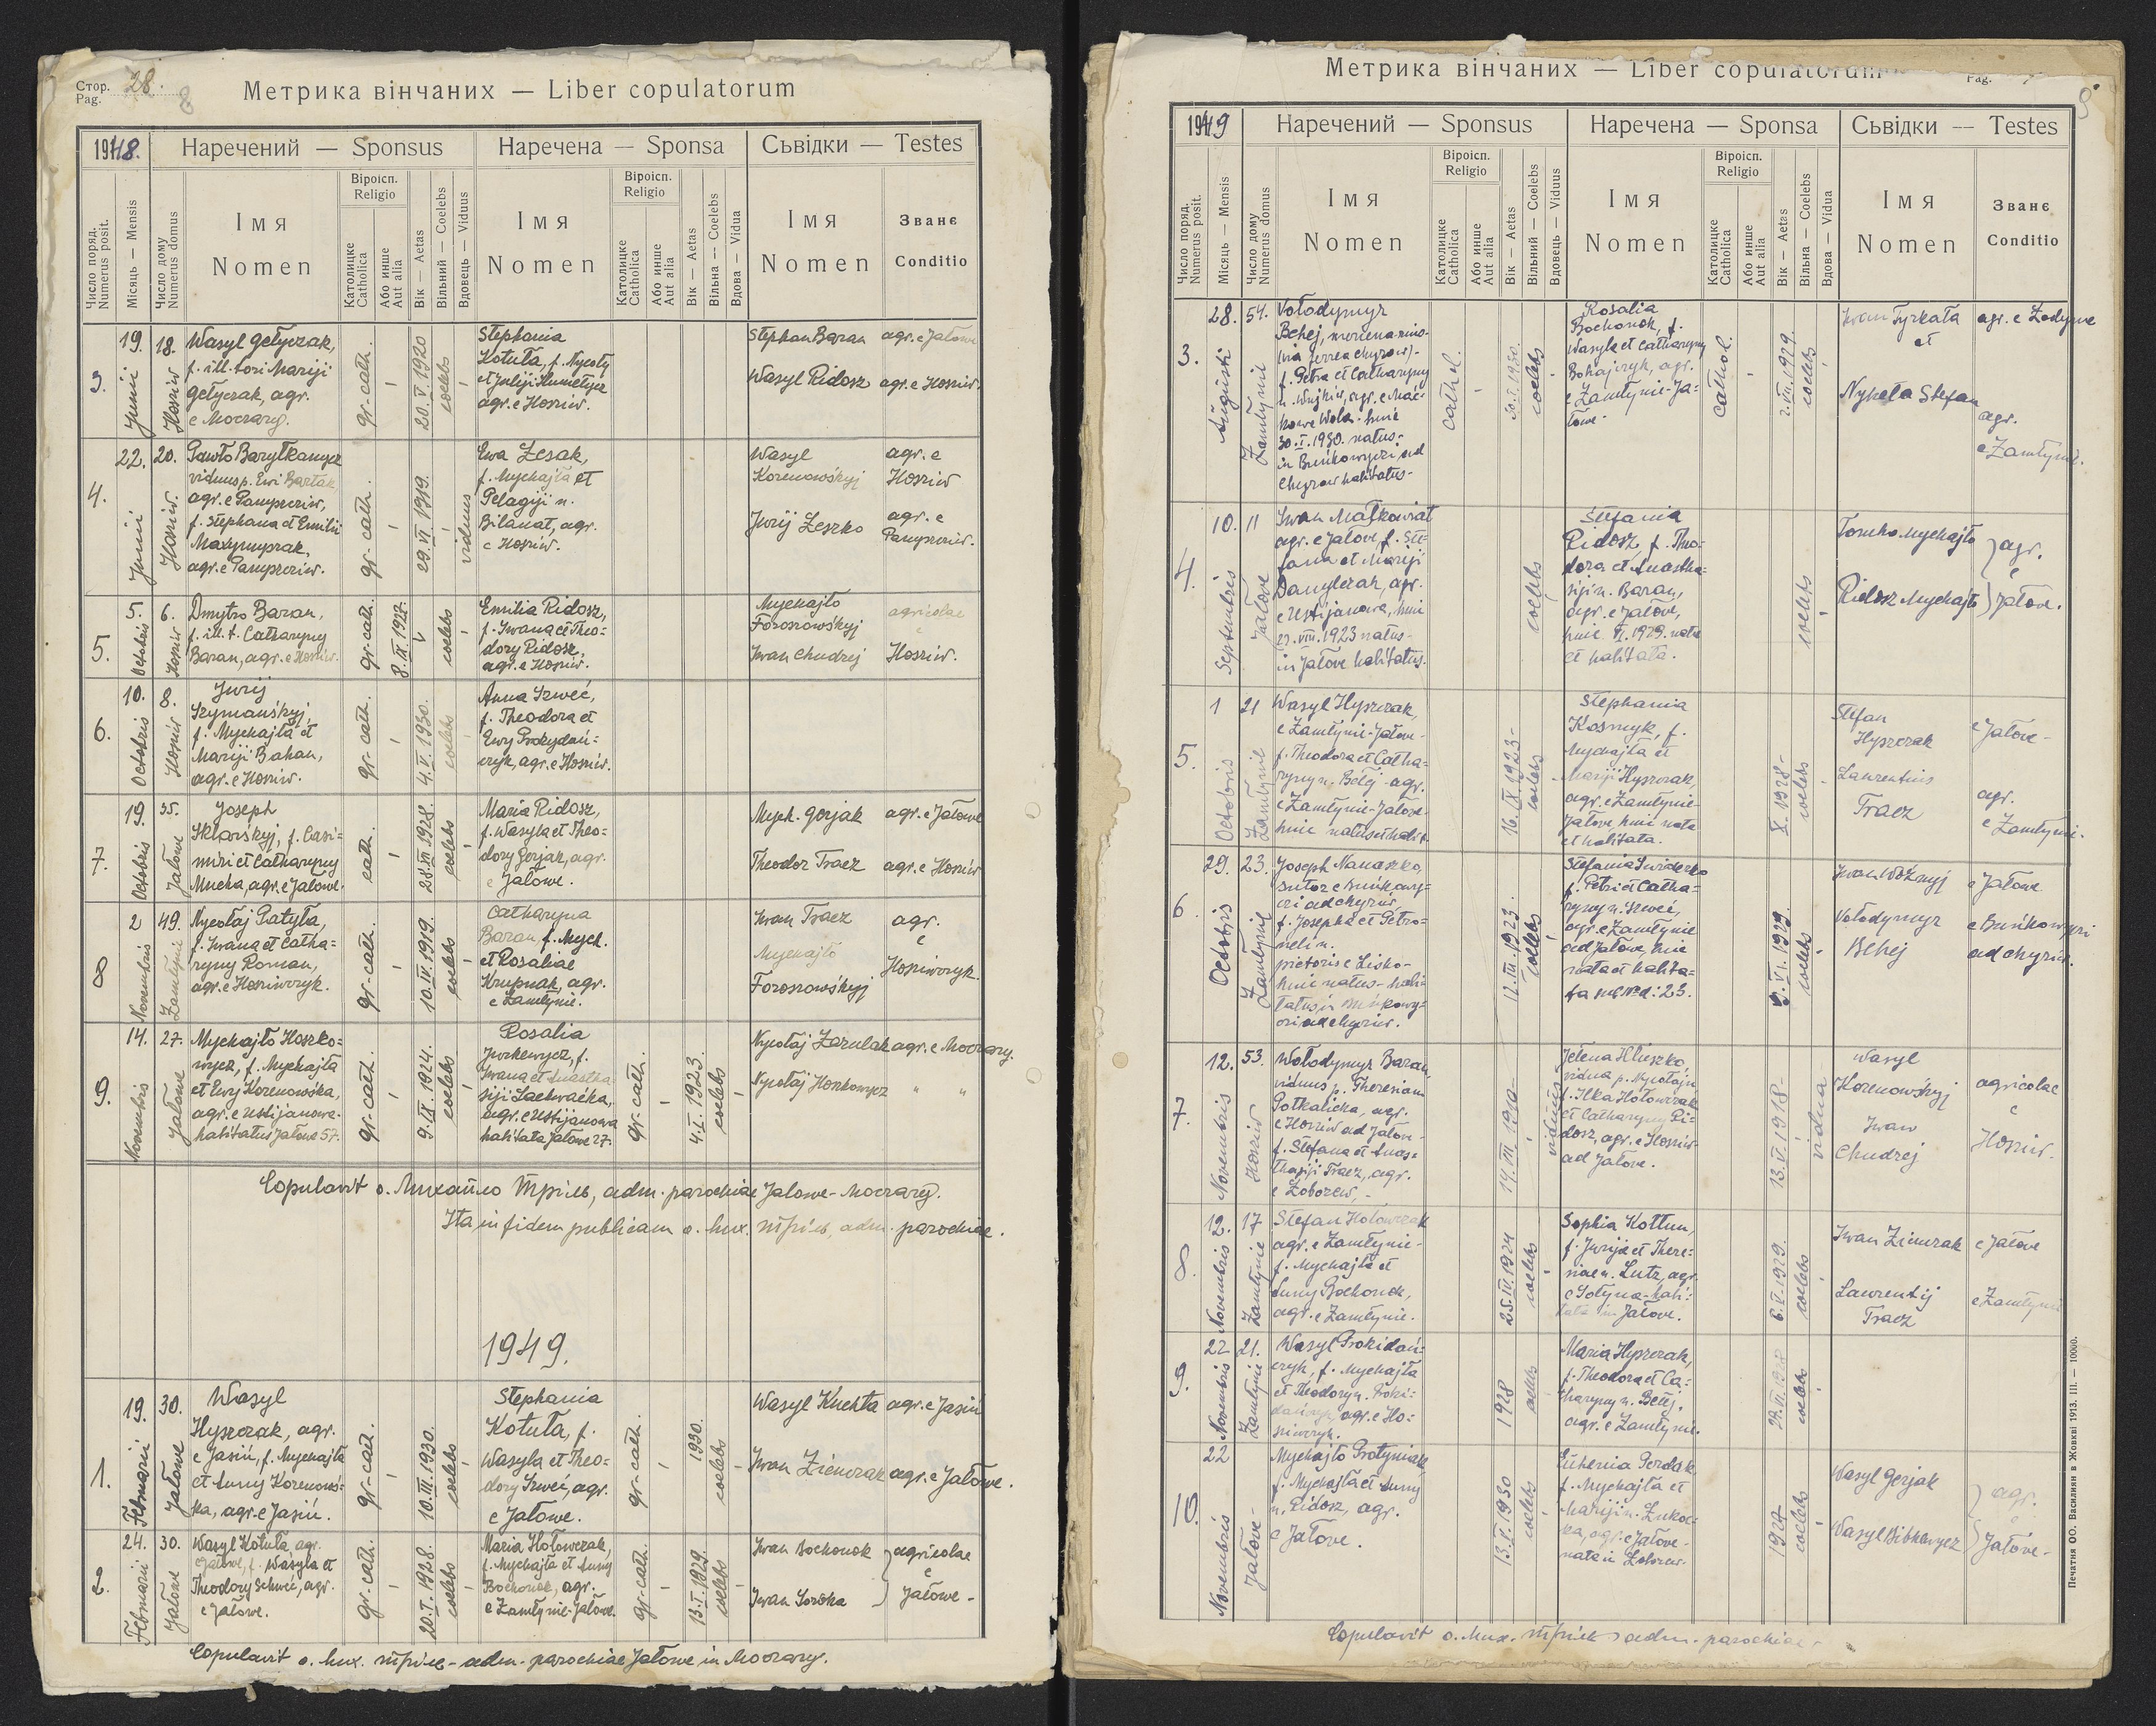 Стор.
Pag. 28.
8
Метрика вінчаних — Liber copulatorum
1948.
Наречений — Sponsus
Наречена — Sponsa
Сьвідки — Testes
Число поряд.
Numerus posit.
Місяць — Mensis
Число дому
Numerus domus
Імя
Nomen
Віроісп.
Religio
Католицке
Catholica
Або инше
Aut alia
Вік — Aetas
Вільний — Coelebs
Вдовець — Viduus
Імя
Nomen
Віроісп.
Religio
Католицке
Catholica
Або инше
Aut alia
Вік — Aetas
Вільна — Coelebs
Вдова — Vidua
Імя
Nomen
Званє
Conditio
3.
19.
Junii
18.
Hosniw
Wasyl Getyczak,
f. ill. tori Mariji
Getyczak, agr.
e Moczary.
gr-cath.
20. V. 1920
coelebs
Stephania
Kotuła, f. Mycoły
agr. e Hosniw.
Stephan Baran agr. e Jałowe
Wasyl Ridosz agr. e Hosniw.
4.
22.
Junii
20.
Hosniw.
Pawło
viduus p. Ewi Bartak
f. Stephana et Emilii
gr-cath.
29. VI 1919.
viduus
Ewa Lesak,
f. Mychajła et
Pelagiji n.
Bilanat, agr.
e Hosniw.
Wasyl
Korenowśkyj
agr. e
Hosniw
Jurij Leszko
agr. e
5.
5.
Octobris
6.
Hosniw
Dmytro Baran,
f. ill. t. Catharyny
Baran, agr. e Hosniw.
gr-cath.
8. IX 1927
coelebs
Emilia Ridosz,
f. Iwana et Theo=
dory Ridosz,
agr. e Hosniw.
Mychajło
Foroszowśkyj
Iwan Chudzej
agricolae
e
Hosniw.
6.
10.
Octobris
8.
Hosniw
Jurij
Szymanśkyj,
f. Mychajła et
Mariji Bahan,
agr. e Hosniw.
gr-cath.
4. V. 1930.
coelebs
Anna Szweć,
f. Theodora et
Ewy Prokydań=
czyk, agr. e Hosniw.
7.
19.
Octobris
35.
Jałowe
Joseph
Sklarśkyj, f. Casi=
miri et Catharyny
Mucha, agr. e Jałowe.
cath.
28. III 1928.
coelebs
Maria Ridosz,
f. Wasyla et Theo=
dory Gerjak, agr.
e Jałowe.
Mych. Gerjak agr. e Jałowe
Theodor Tracz agr. e Hosniw
8
2
Novembris
49.
Zamłynie
Mycołaj Patyła,
f. Iwana et Catha=
ryny Roman,
agr. e Hosniwczyk.
gr-cath.
10. IV. 1919.
coelebs
Catharyna
Baran, f. Mych.
et Rosaliae
Krupnak, agr.
e Zamłynie.
Iwan Tracz
Mychajło
Foroszowśkyj
agr.
e
Hosniwczyk
9.
14.
Novembris
27.
Jałowe
Mychajło Hoszko=
wycz, f. Mychajła
et Ewy Korenowśka,
agr. e Ustijanowa.
habitatus Jałowe 57.
gr-cath.
9. IX. 1924.
coelebs
Rosalia
Jurkewycz, f.
Iwana et Anastha
agr. e Ustijanowa
habitata Jałowe 27.
gr-cath.
4. I. 1923.
coelebs
Mycołaj Zazulak agr. e Moczary.
Mycołaj Honkowycz " "
Copulavit o. Михайло Тріль, adm. parochiae Jalowe-Moczary.
Ita in fidem publicam o. Мих. Тріль, adm. parochiae.
1949.
1.
19.
Februarii
30.
Jałowe
Wasyl
Hyszczak, agr.
e Jasiń, f. Mychajła
et Anny Korenowś=
ka, agr. e Jasiń.
gr-cath.
10. III. 1930.
coelebs
Stephania
Kotuła, f.
Wasyla et Theo=
dory Szweć, agr.
e Jałowe.
gr-cath.
1930.
coelebs
Wasyl Kuchta agr. e Jasiń
Iwan Zienczak agr. e Jałowe.
2.
24.
Februarii
30.
Jałowe
Wasyl Kotuła, agr.
e Jałowe, f. Wasyla et
Theodory Schweć, agr.
e Jałowe.
gr-cath.
20. I. 1928.
coelebs
Maria Hołowczak,
f. Mychajła et Anny
Bochonok, agr.
e Zamłynie-Jałowe.
gr-cath.
13. I. 1929.
coelebs
Iwan Bochonok
Iwan Soroka
agricolae
e
Jałowe -
Copulavit o. Мих. Тріль - adm. parochiae Jałowe in Moczary.
Метрика вінчаних — Liber copulatorum
Pag.
9
1949
Наречений — Sponsus
Наречена — Sponsa
Сьвідки — Testes
Число поряд.
Numerus posit.
Місяць — Mensis
Число дому
Numerus domus
Імя
Nomen
Віроісп.
Religio
Католицке
Catholica
Або инше
Aut alia
Вік — Aetas
Вільний — Coelebs
Вдовець — Viduus
Імя
Nomen
Віроісп.
Religio
Католицке
Catholica
Або инше
Aut alia
Вік — Aetas
Вільна — Coelebs
Вдова — Vidua
Імя
Nomen
Званє
Conditio
3.
28.
Augusti
54.
Zamłynie
Wołodymyr
f. Petra et Catharyny
30. I. 1930. natus-
in Buńkowyczi ad
Chyrow habitatus-
cathol.
30. I. 1930.
coelebs
Rosalia
Bochonok, f.
Wasyla et Catharyny
Bohajczyk, agr.
e Zamłynie-Ja=
łowe-
cathol.
2. VII. 1929.
coelebs
Iwan Tyrkała
et
Nykoła Stefan
agr.
e Zamłynie.
4.
10.
Septembris
11
Jałowe
Iwan Małkowiat
agr. e Jałowe, f. Ste=
fana et Mariji
Danylczak, agr.
e Ustijanowa, hinc
29. VIII. 1923 natus-
in Jałowe habitatus.
coelebs
Stefania
Ridosz, f. Theo=
dora et Anastha=
siji n. Baran,
agr. e Jałowe,
hinc VI. 1929. nata
et habitata.
coelebs
Tomcho Mychajło
Ridosz Mychajło
agr.
e
Jałowe.
5.
1
Octobris
21
Zamłynie
Wasyl Hyszczak,
e Zamłynie-Jałowe-
f. Theodora et Catha=
ryny n. Bełej - agr.
e Zamłynie-Jałowe-
hinc natus et habit.
16. IX. 1923-
coelebs
Stephania
Kosmyk, f.
Mychajła et
Mariji Hyszczak,
agr. e Zamłynie-
Jałowe, hinc nata
et habitata.
X. 1928-
coelebs
Stefan
Hyszczak
Laurentius
Tracz
e Jałowe-
agr.
e Zamłynie.
6
29.
Octobris
23.
Zamłynie
Joseph Nanaszko,
sutor e Buńkowy=
czi ad Chyriw,
f. Josepha et Petro=
neli n.
pictoris e Lisko-
hinc natus - habi=
tatus in Buńkowy=
czi ad Chyriw.
12. III. 1923.
coelebs
f. Petri et Catha=
ryny n. Szweć,
agr. e Zamłynie
ad Jałowe, hinc
nata et habita=
ta sub Nrd: 23.
VI. 1929.
coelebs
Iwan Woźnyj
Wołodymyr
Behej
e Jałowe
e Buńkowyczi
ad Chyriw.
7.
12.
Novembris
53.
Hosniw
Wołodymyr Baran,
viduus p. Theresiam
Potkalicka, agr.
e Hosniw ad Jałowe-
f. Stefana et Anas=
thasiji Tracz, agr.
e Łobozew,-
14. III. 1910-
viduus
Jelena Hłuszko,
vidua p. Mycołaju
f. Ilka Hołowczak
et Catharyny Ri=
dosz, agr. e Hosniw
ad Jałowe.
13. V. 1918-
vidua
Wasyl
Korenowśkyj
Iwan
Chudzej
agricolae
e
Hosniw.
8.
12.
Novembris
17
Zamłynie
Stefan Hołowczak
agr. e Zamłynie-
f. Mychajła et
Anny Bochonok,
agr. e Zamłynie.
25. IV. 1924
coelebs
Sophia Kołtun,
f. Jurija et There=
siae n. Lutz, agr.
e Sołyna - habi=
tata in Jałowe.
6. V. 1929.
coelebs
Iwan Zienczak
Laurentij
Tracz
e Jałowe
e Zamłynie
9.
22
Novembris
21.
Zamłynie
Wasyl Prokidań=
czyk, f. Mychajła
et Theodory n. Proki=
dańczyk, agr. e Ho=
sniwczyk.
1928
coelebs
Maria Hyszczak,
f. Theodora et Ca=
tharyny n. Bełej,
agr. e Zamłynie.
coelebs
10.
22
Novembris
Jałowe-
Mychajło Protyniak,
f. Mychajła et Anny
n. Ridosz, agr.
e Jałowe.
13. V. 1930
coelebs
Euhenia Perdak,
f. Mychajła et
1927
coelebs
Wasyl Gerjak
agr.
e
Jałowe-
Copulavit o. Мих. Тріль adm. parochiae
Печатня ОО. Василиян в Жовкві 1913. III. — 10000.